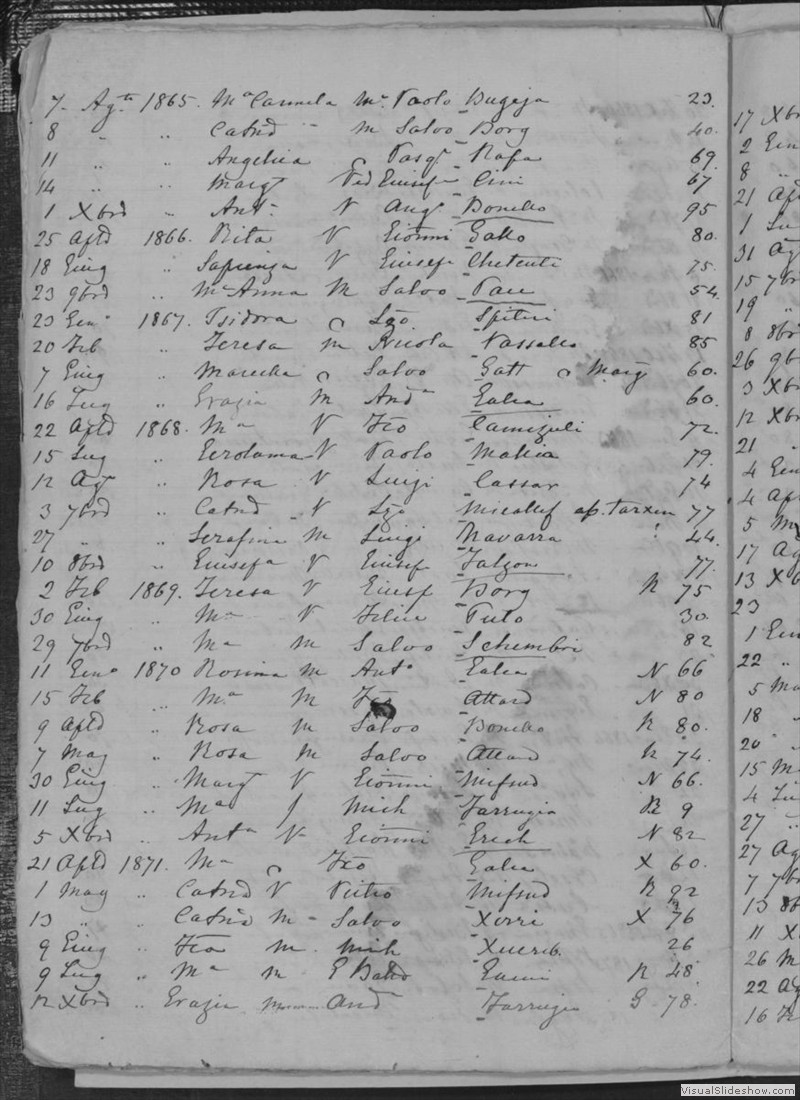 7. Agto 1865. Ma Carmela Mr. Paolo Bugeja 23.
8 " " Catnd m Salvo Borg 40.
11 " " Angelica C Pasqe Rafa 69.
14 " " Margt Ved Giusepe Cini 67
1 Xbrd " Anta. V Ango Bonello 95
25 Apld 1866. Rita V Gionni Gatto 80.
18 Giug " Sapienza V Giusepe Chetcuti 75.
23 9brd " Ma Anna M Salvo Pace 54.
23 Geno 1867. Isidora C Lzo. Spiteri 81
20 Feb " Teresa m Nicola Vassallo 85
7 Giug " Maricchia C Salvo Gatt C Marg 60.
16 Lug " Grazia M Anda Galea 60.
22 Apld 1868. Ma V Fco Camizuli 72.
15 Lug " Gerolama V Paolo Mallia 79.
12 Agt " Rosa V Luigi Cassar 74
3 7brd " Catnd V Lzo Micallef ap. Tarxien 77
27 " " Serafina M Luigi Navarra 44.
10 8brd " Giusefa V Giusef Falzon 77.
2 Feb 1869. Teresa V Giusf Borg R 75
30 Giug " Ma V Felice 30.
29 7brd " Ma m Salvo Schembri 82
11 Geno 1870 Rosina m Anto Galea N 66
15 Feb " Ma M Fco Attard N 80
9 Apld " Rosa m Salvo Bonello R 80.
7 Mag " Rosa m Salvo Attard R 74.
30 Giug " Margt V Gionni Mifsud N 66.
11 Lug " Ma f Mich Farrugia R 9
5 Xbrd " Anta V Gionni Grech N 82
21 Apld 1871. Ma C Fco Galea X 60.
1 Mag " Catnd V Pietro Mifsud R 92
13 " " Catnd M Salvo Xerri X 76
9 Giug " Fca m Mich Xuereb. 26
9 Lug " Ma m G Batto Gauci R 48
12 Xbrd " Grazia M And Farrugia G 78.
17 Xbr
2 Gen
8 "
21 Apl
1 Lu
31 Ag
15 7br
19 "
8 8br
26 9br
3 Xbr
12 Xbr
21
4 Gen
4 Apl
5 M
17 Ag
13 Xb
23
1 Gen
22 "
5 Ma
18
20
15 M
4 Lu
27 "
27 Ag
7 7br
13 8b
11 X
26 M
22 Ag
16 Fe
VisualSlideshow.com